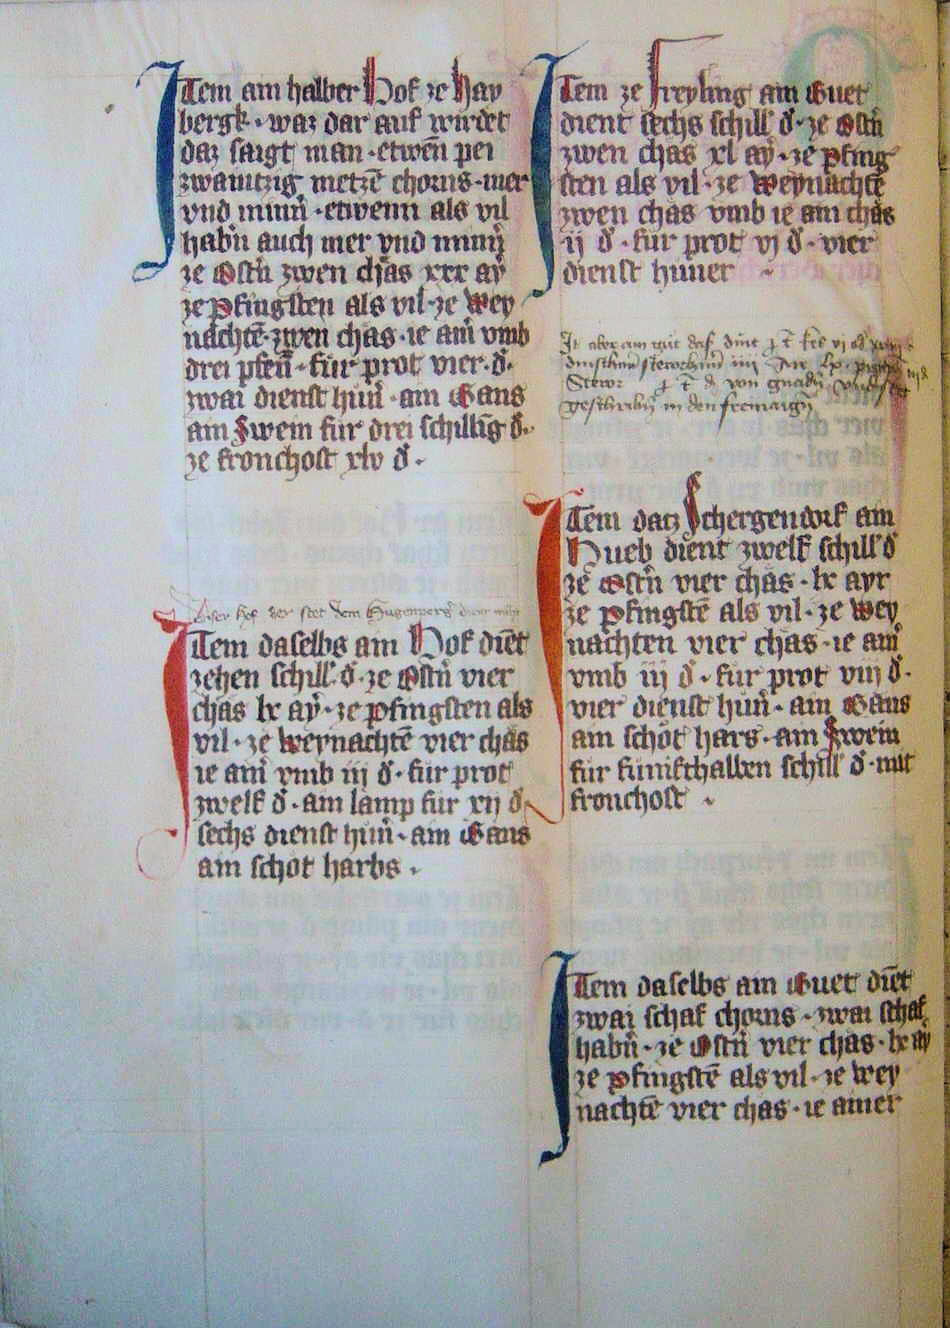 Item am halber Hof ze Hay
bergk · waz dar auf wirdet
daz saigt man · etwen pei
zwaintzig metzē chorns · mer
vnd minn̄ · etwenn als vil
habn̄ auch mer vnd minn̄
ze Ostn̄ zwen chas xxx aÿ
ze pfingsten als vil · ze Wey
nachtē · zwen chas · ie am̄ vmb
drei pfen̄ · für prot vier · d̄ ·
zwai dienst hūn̄ · am Gans
am Swein für drei schilling d̄ ·
ze fronchost xlv d̄ ·
Diser hof der stet dem
Item daselbs am Hof diēt
zehen schill · d̄ · ze Ostn̄ vier
chas lx aÿ · ze pfingsten als
vil · ze weynachtē vier chas
ie am̄ vmb iij d̄ · für prot
zwelf d̄ · am lamp für xij d̄
sechs dienst hūn̄ · am Gans
am schot harbs ·
Item ze Freyling am Guet
dient sechs schill d̄ · ze Ostn̄
zwen chas xl aÿ · ze pfing
sten als vil · ze weynachtē
zwen chas vmb ie am chas
ij d̄ · für prot vj d̄ · vier
dienst huner ·
It aber am gut
von
in den
Item datz Schergendorf am
Hueb dient zwelf schill d̄
ze Ostn̄ vier chas · lx ayr
ze pfingstē als vil · ze wey
nachten vier chas · ie am̄
vmb iij d̄ · für prot viij d̄ ·
vier dienst hūn̄ · am Gans
am schot hars · am Swein
für fünfthalben schill d̄ · mit
fronchost ·
Item daselbs am Guet diēt
zwai schaf chorns · zwai schaf
habn̄ · ze Ostn̄ vier chas · lx aÿ
ze pfingstē als vil · ze wey
nachtē vier chas · ie ainer